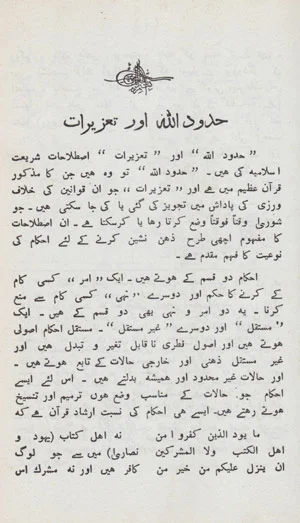 حدود اللہ اور تعزیرات
’’ حدود اللہ ‘‘ اور ’’ تعزیرات ‘‘ اصطلاحات شریعت
اسلامیہ کی ہیں ۔ ’’ حدود اللہ ‘‘ تو وہ ہیں جن کا مذکور
قرآن عظیم میں ہے اور ’’ تعزیرات ‘‘، جو ان قوانین کی خلاف
ورزی کی پاداش میں تجویز کی گئی یا کی جا سکتی ہیں ۔ جو
شوریٰ وقتاً فوقتاً وضع کرتا رہا یا کرسکتا ہے ۔ ان اصطلاحات
کا مفہوم اچھی طرح ذہن نشین کرنے کے لئے احکام کی
نوعیت کا فہم مقدم ہے ۔
احکام دو قسم کے ہوتے ہیں ۔ ایک ’’ امر ‘‘ کسی کام
کے کرنے کا حکم اور دوسرے ’’ نہی ‘‘ کسی کام سے منع
کرنا ۔ یہ دو امر و نہی بھی دو قسم کے ہیں ۔ ایک
’’ مستقل ‘‘ اور دوسرے ’’ غیر مستقل ‘‘ ۔ مستقل احکام اصولی
ہوتے ہیں اور اصول فطری نا قابل تغیر و تبدل ہیں اور
غیر مستقل ذہنی اور خارجی حالات کے تابع ہوتے ہیں ۔
اور حالات غیر محدود اور ہمیشہ بدلتے ہیں ۔ اس لئے ایسے
احکام جو حالات کے مناسب وضع ہوں ترمیم اور تنسیخ
ہوتے رہتے ہیں۔ ایسے ہی احکام کی نسبت ارشاد قرآن ہے کہ
ما یود الذین کفروا من نہ اہل کتاب (یہود و
اہل الکتب ولا المشرکین نصاریٰ) میں سے جو لوگ
ان ینزل علیکم من خیر من کافر ہیں اور نہ مشرک اس